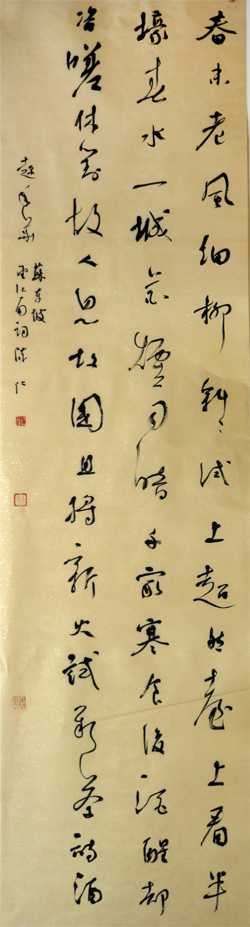 春未老風細柳斜〻試上超然臺上看半
壕春水一城花煙雨暗千家寒食後酒醒却
咨嗟休對故人思故國且將新火試新茶詩酒
趁年華
蘇東坡
望江南詞陳